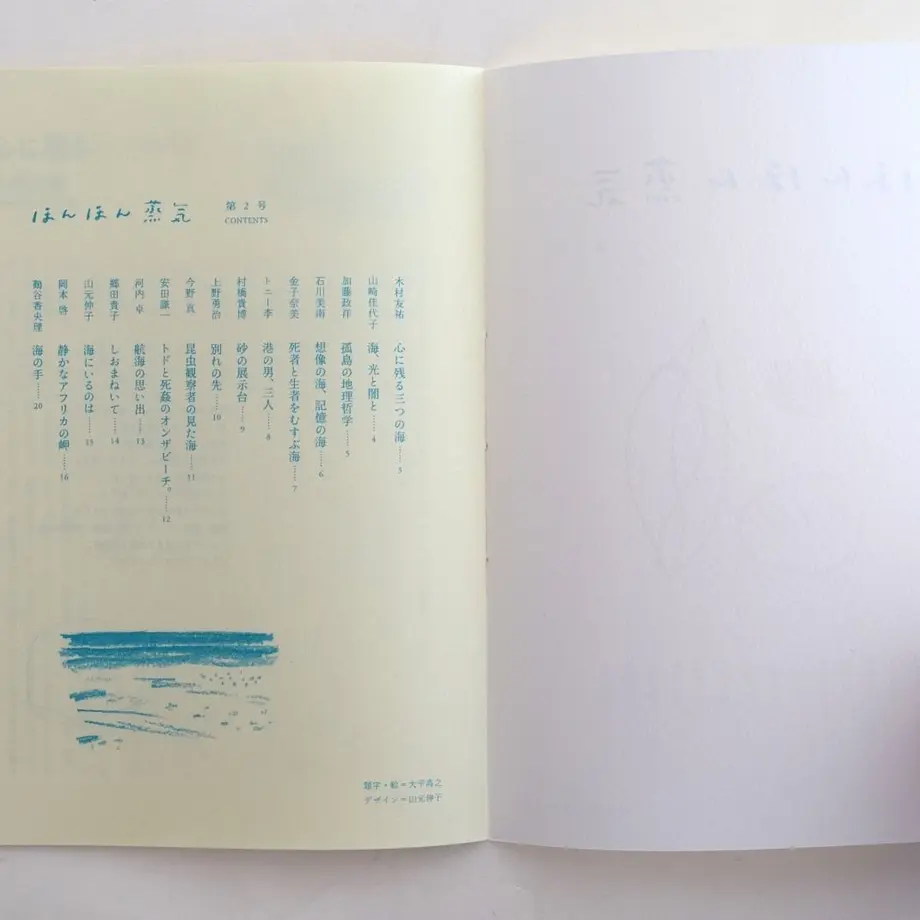 ほんほん蒸気
第2号
CONTENTS
木村友祐 心に残る三つの海……3
山崎佳代子 海、光と闇と……4
加藤政洋 孤島の地理哲学……5
石川美南 想像の海、記憶の海……6
金子奈美 死者と生者をむすぶ海……7
トニー李 港の男、三人……8
村橋貴博 砂の展示台……9
上野勇治 別れの先……10
今野真 昆虫観察者の見た海……11
安田謙一 トドと死姦のオンザビーチ。……12
河内卓 航海の思い出……13
郷田貴子 しおまねいて……14
山元伸子 海にいるのは……15
岡本啓 静かなアフリカの岬……16
鶴谷香央理 海の手……20
題字・絵=大平高之
デザイン=山元伸子